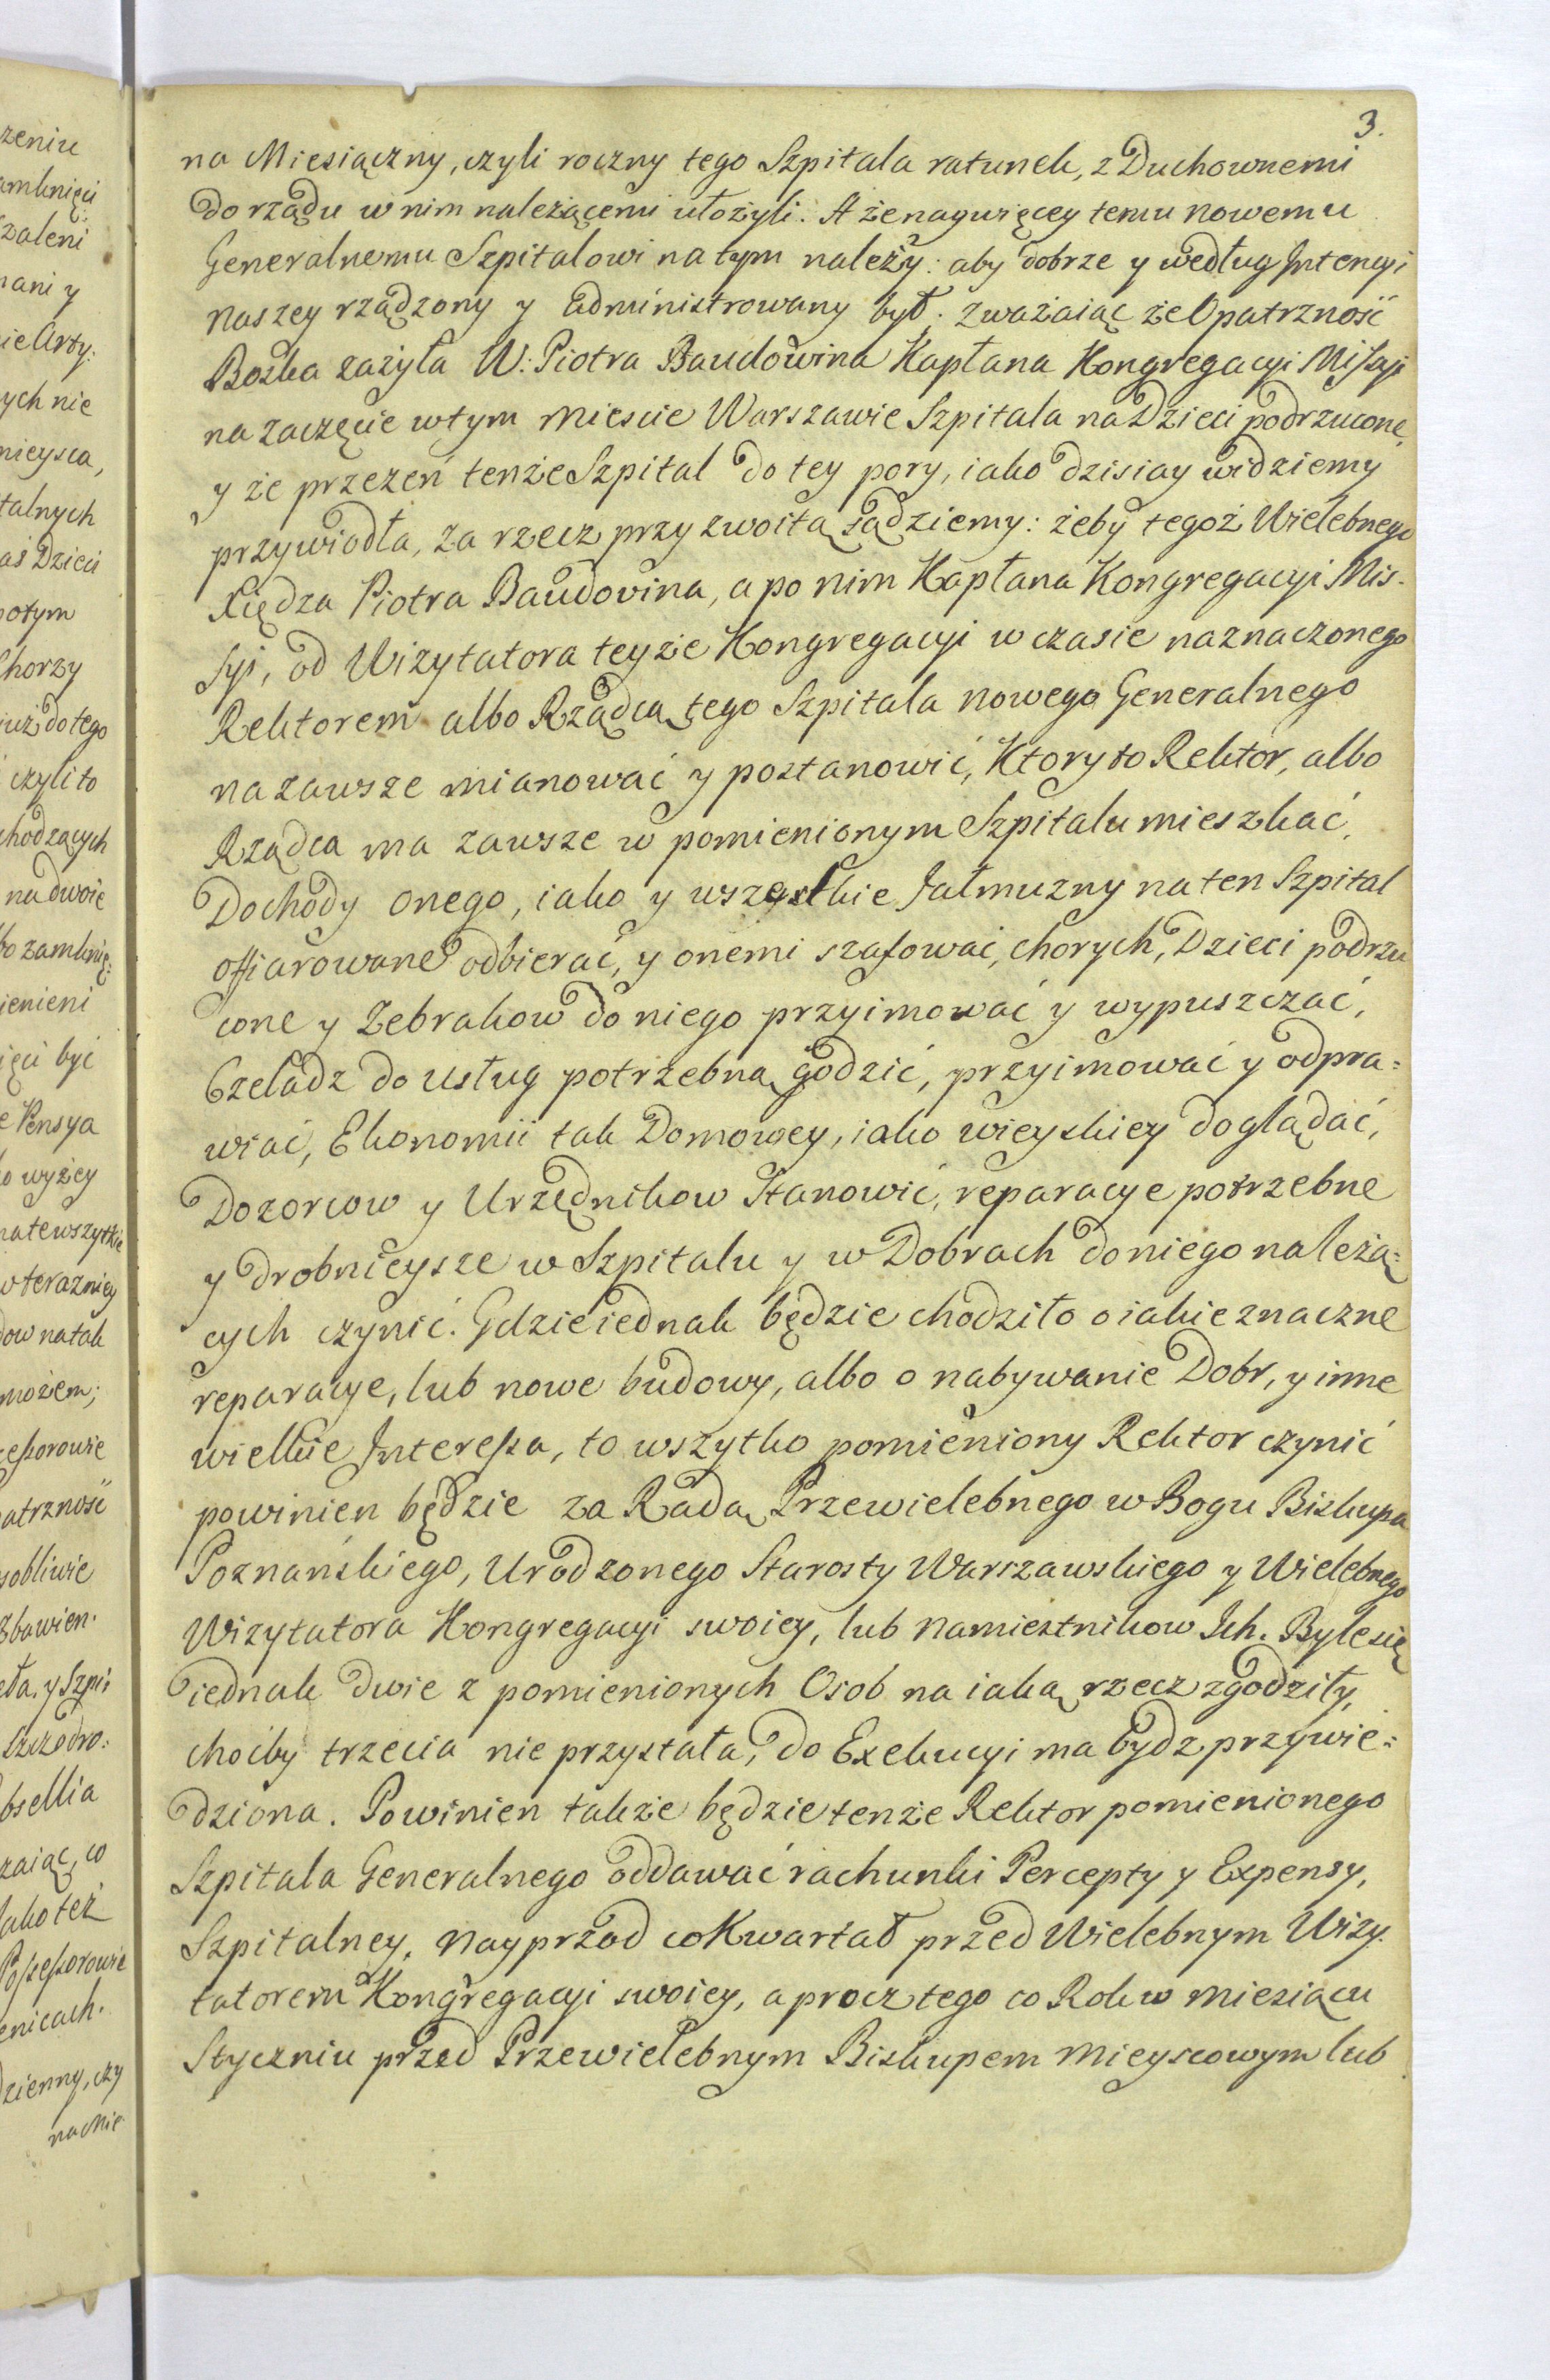 3.
na Miesiączny, czyli roczny tego Szpitala ratunek, z Duchownemi
do rządu w nim należącemi ułożyli. A że naywięcey temu nowemu
Generalnemu Szpitalowi na tym należy: aby dobrze y według Intencyi
naszey rządzony y administrowany był. zważaiąc że Opatrzność
Boska zażyła W: Piotra Baudowina Kapłana Kongregacyi Missyi
na zaczęcie w tym miescie Warszawie Szpitala na Dzieci podrzucone,
y że przezeń tenże Szpital do tey pory, iako dzisiay widziemy
przywiodła, za rzecz przyzwoitą sądziemy: żeby tegoż Wielebnego
Xiędza Piotra Baudovina, a po nim Kapłana Kongregacyi Mis-
syi, od Wizytatora teyże Kongregacyi w czasie naznaczonego
Rektorem albo Rządcą tego Szpitala nowego Generalnego
na zawsze mianować y postanowić, Ktory to Rektor, albo
Rządca ma zawsze w pomienionym Szpitalu mieszkać,
Dochody onego, iako y wszystkie Jałmużny na ten Szpital
offiarowane odbierać, y onemi szafować, chorych, Dzieci podrzu
cone y Żebrakow do niego przyimować y wypuszczać,
Czeladz do usług potrzebną godzić, przyimować y odpra=
wiać, Ekonomii tak Domowey, iako wieyskiey doglądać,
Dozorcow y Urzędnikow Stanowić, reparacye potrzebne
y drobnieysze w Szpitalu y w Dobrach do niego należą=
cych czynić. Gdzie iednak będzie chodziło o iakie znaczne
reparacye, lub nowe budowy, albo o nabywanie Dobr, y inne
wielkie Interessa, to wszytko pomieniony Rektor czynić
powinien będzie za Radą Przewielebnego w Bogu Biskupa
Poznańskiego, Urodzonego Starosty Warszawskiego y Wielebnego
Wizytatora Kongregacyi swoiey, lub Namiestnikow Ich. Byle się
iednak dwie z pomienionych Osob na iaką rzecz zgodziły,
choćby trzecia nie przystała, do Exekucyi ma bydz przywie=
dziona. Powinien także będzie tenże Rektor pomienionego
Szpitala Generalnego oddawać rachunki Percepty y Expensy,
Szpitalney, nayprzod co Kwartał przed Wielebnym Wizy-
tatorem Kongregacyi swoiey, a procz tego co Rok w miesiącu
Styczniu przed Przewielebnym Biskupem mieyscowym lub